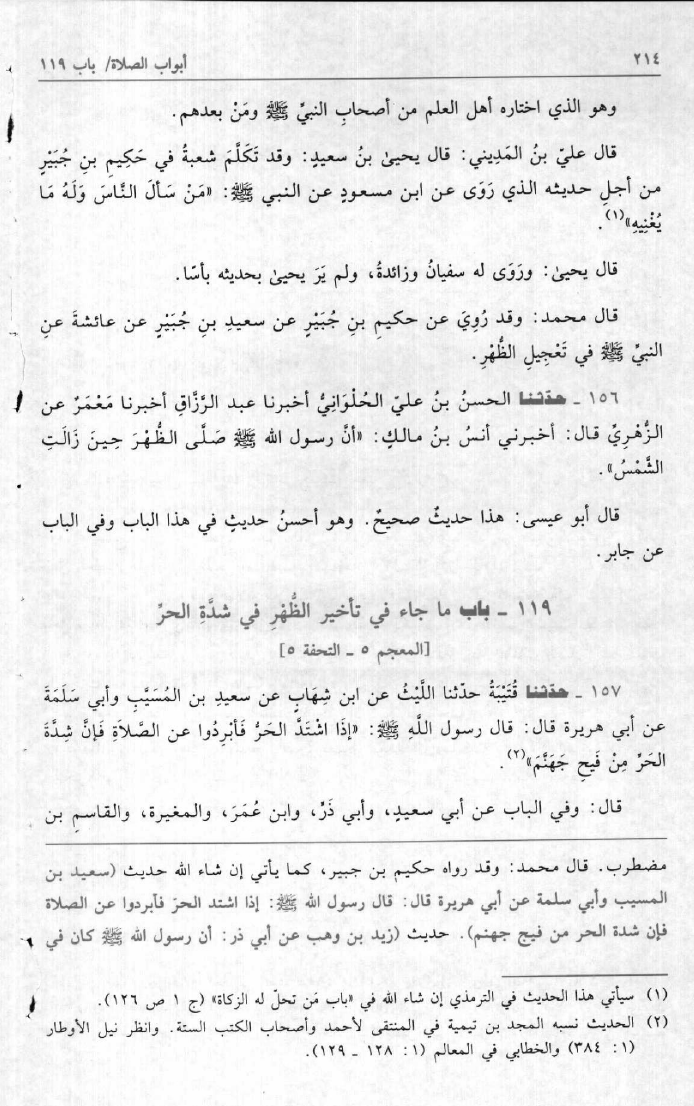 ٢١٤
أبواب الصلاة/ باب ١١٩
وهو الذي اختاره أهل العلم من أصحابِ النبيِّ ﷺ ومَنْ بعدهم.
قال عليّ بنُ المَدِيني: قال يحيىٰ بنُ سعيدٍ: وقد تَكَلَّمَ شعبةُ في حَكِيمِ بنِ جُبَيْرٍ
من أجلِ حديثه الذي رَوَى عن ابن مسعودٍ عن النبي ﷺ: «مَنْ سَألَ النَّاسَ وَلَهُ مَا
يُغْنِيهِ»(١).
قال يحيىٰ: ورَوَى له سفيانُ وزائدةُ، ولم يَرَ يحيىٰ بحديثه بأسًا.
قال محمد: وقد رُوِيَ عن حكيمِ بنِ جُبَيْرٍ عن سعيدِ بنِ جُبَيْرٍ عن عائشةَ عنِ
النبيِّ ﷺ في تَعْجِيلِ الظُّهْرِ.
١٥٦ ـ حدّثنا الحسنُ بنُ عليّ الحُلْوَانِيُّ أخبرنا عبد الرَّزَّاقِ أخبرنا مَعْمَرٌ عن
الزُّهْرِيِّ قال: أخبرني أنسُ بنُ مالكٍ: «أنَّ رسول الله ﷺ صَلَّى الظُّهْرَ حِينَ زَالَتِ
الشَّمْسُ».
قال أبو عيسى: هذا حديثٌ صحيحٌ. وهو أحسنُ حديثٍ في هذا الباب وفي الباب
عن جابر.
١١٩ ـ باب ما جاء في تأخير الظُّهْرِ في شدَّةِ الحرِّ
[المعجم ٥ ـ التحفة ٥]
١٥٧ ـ حدّثنا قُتَيْبَةُ حدّثنا اللَّيْثُ عن ابن شِهَابٍ عن سعيدِ بن المُسَيَّبِ وأبي سَلَمَةَ
عن أبي هريرة قال: قال رسول اللَّهِ ﷺ: «إذَا اشْتَدَّ الحَرُّ فَأبْرِدُوا عن الصَّلاَةِ فَإنَّ شِدَّةَ
الحَرِّ مِنْ فَيحِ جَهَنَّمَ»(٢).
قال: وفي الباب عن أبي سعيدٍ، وأبي ذَرٍّ، وابن عُمَرَ، والمغيرة، والقاسمِ بن
مضطرب. قال محمد: وقد رواه حكيم بن جبير، كما يأتي إن شاء الله حديث (سعيد بن
المسيب وأبي سلمة عن أبي هريرة قال: قال رسول الله ﷺ: إذا اشتد الحرّ فآبردوا عن الصلاة
فإن شدة الحر من فيح جهنم). حديث (زيد بن وهب عن أبي ذر: أن رسول الله ﷺ كان في
(١) سيأتي هذا الحديث في الترمذي إن شاء الله في «باب مَن تحلّ له الزكاة» (ج ١ ص ١٢٦).
(٢) الحديث نسبه المجد بن تيمية في المنتقى لأحمد وأصحاب الكتب الستة. وانظر نيل الأوطار
(١: ٣٨٤) والخطابي في المعالم (١: ١٢٨ ـ ١٢٩).